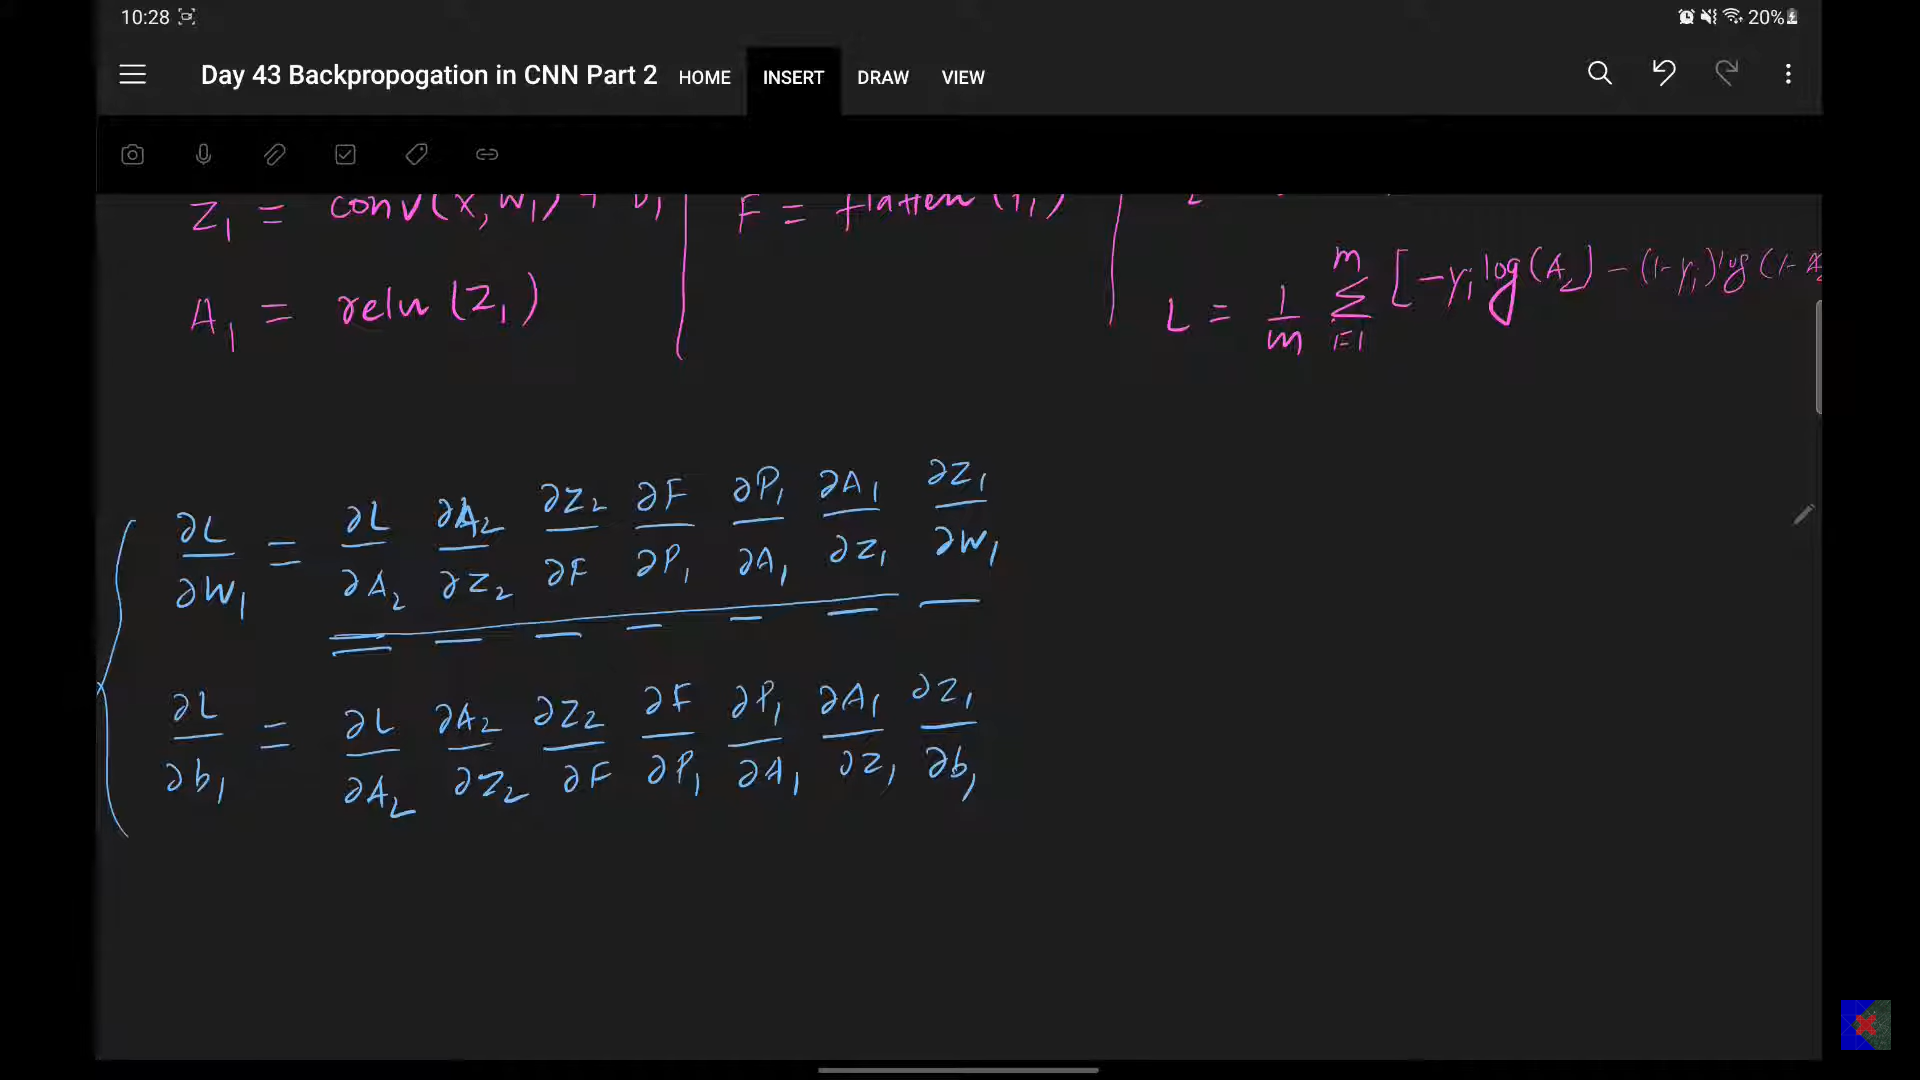 10:28 20%
Day 43 Backpropogation in CNN Part 2 HOME INSERT DRAW VIEW
Z₁ = conv(X, W₁) + b₁
A₁ = relu (Z₁)
F = flatten (P₁)
L = 1/m Σ_{i=1}^{m} [-yᵢ log(A₂) - (1-yᵢ) log(1-
∂L/∂W₁ = ∂L/∂A₂ ∂A₂/∂Z₂ ∂Z₂/∂F ∂F/∂P₁ ∂P₁/∂A₁ ∂A₁/∂Z₁ ∂Z₁/∂W₁
∂L/∂b₁ = ∂L/∂A₂ ∂A₂/∂Z₂ ∂Z₂/∂F ∂F/∂P₁ ∂P₁/∂A₁ ∂A₁/∂Z₁ ∂Z₁/∂b₁